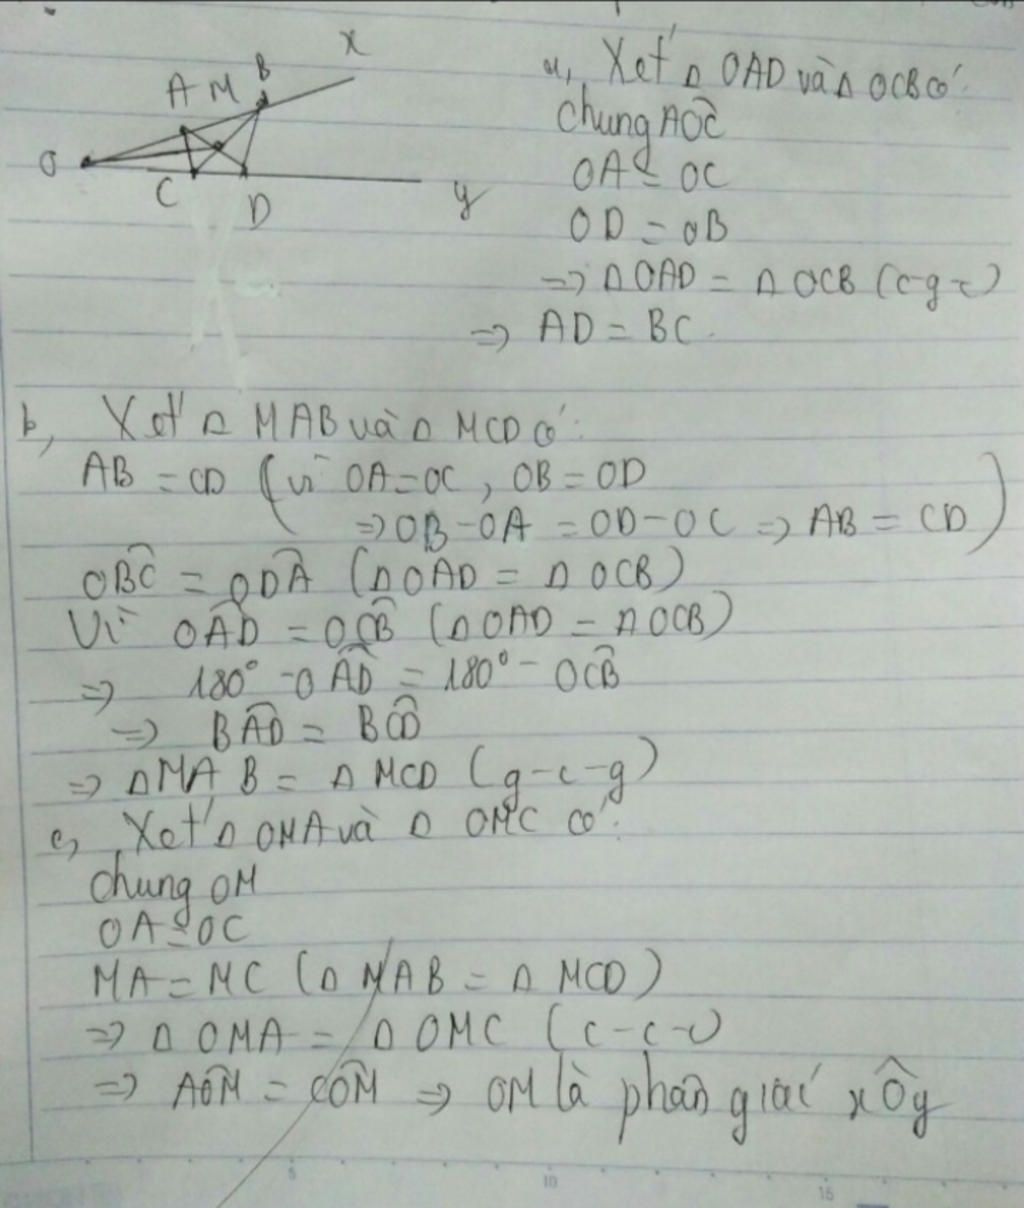 x
A M B
O
C
D
y
a, Xét Δ OAD và Δ OCB có:
chung AÔC
OA = OC
OD = OB
=> Δ OAD = Δ OCB (c-g-c)
=> AD = BC.
b, Xét Δ MAB và Δ MCD có:
AB = CD (vì OA=OC, OB=OD
=> OB-OA = OD-OC => AB = CD)
OB̂C = OD̂A (Δ OAD = Δ OCB)
Vì OÂD = OĈB (Δ OAD = Δ OCB)
=> 180° - OÂD = 180° - OĈB
=> BÂD = BĈD
=> Δ MAB = Δ MCD (g-c-g)
c, Xét Δ OMA và Δ OMC có:
chung OM
OA = OC
MA = MC (Δ MAB = Δ MCD)
=> Δ OMA = Δ OMC (c-c-c)
=> AÔM = CÔM => OM là phân giác xÔy
5 10 15